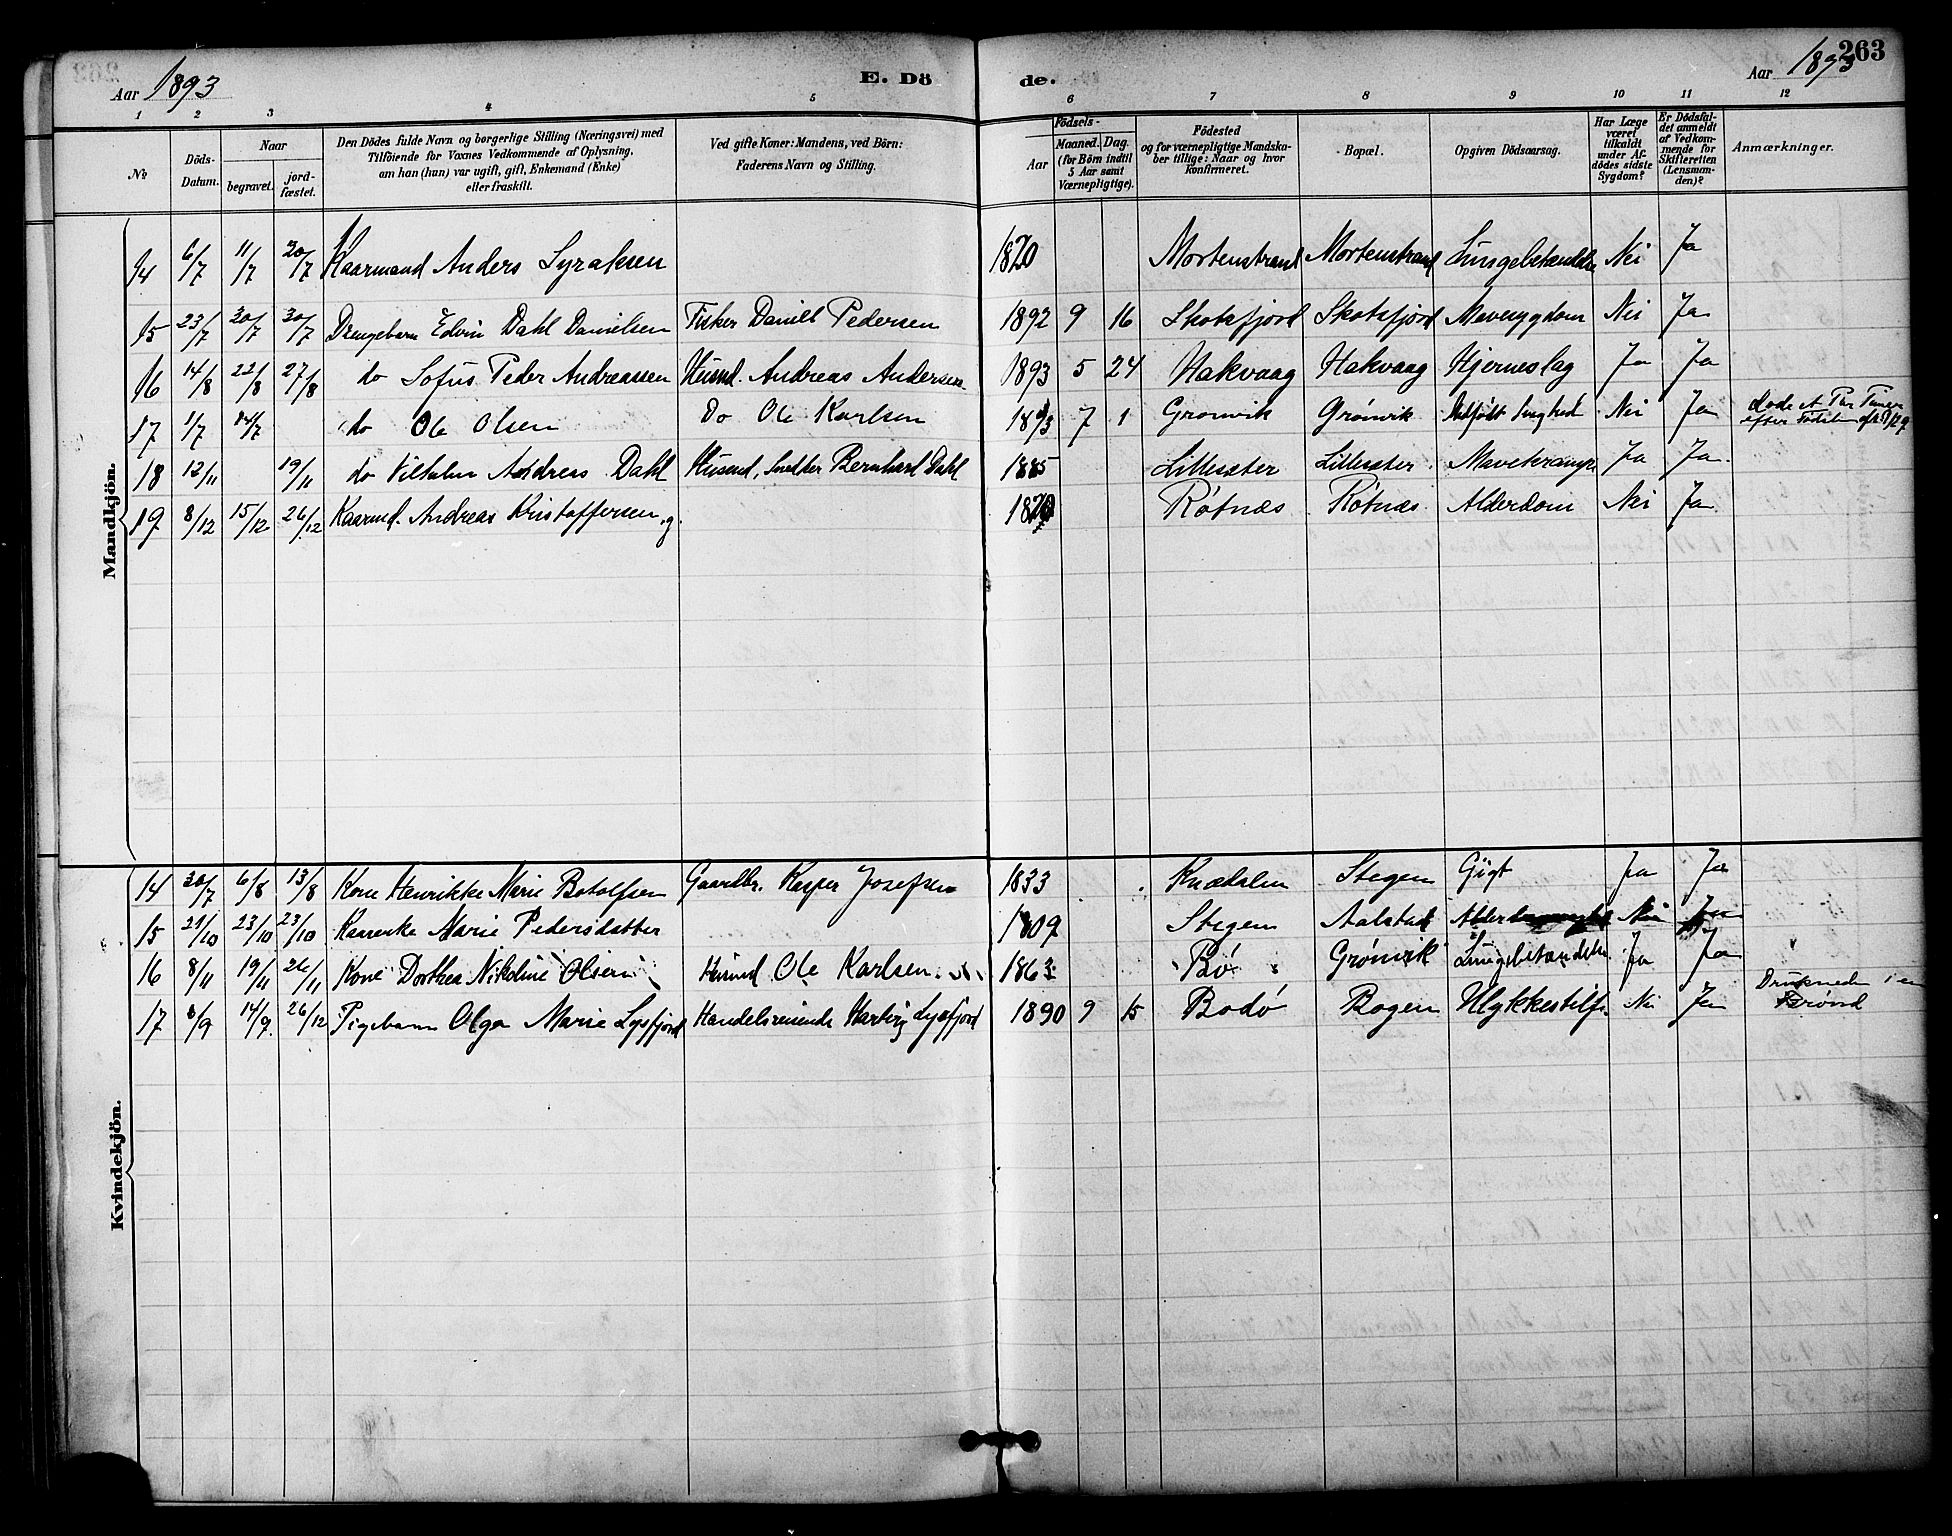 263
Aar 1893 E. Dö de. Aar 1893
1 2 3 4 5 6 7 8 9 10 11 12
No
Döds-Datum.
Naar
begravet.
jord-fæstet.
Den Dödes fulde Navn og borgerlige Stilling (Næringsvei) med
Tilföiende for Voxnes Vedkommende af Oplysning,
om han (hun) var ugift, gift, Enkemand (Enke)
eller fraskilt.
Ved gifte Koner: Mandens, ved Börn:
Faderens Navn og Stilling.
Födsels-
Aar
Maaned. Dag.
(for Börn indtil
5 Aar samt
Værnepligtige).
Födested
og for værnepligtige Mandska-
ber tillige: Naar og hvor
konfirmeret.
Bopæl.
Opgiven Dödsaarsag.
Har Læge
været
tilkaldt
under Af-
dödes sidste
Sygdom?
Er Dödsfal-
det anmeldt
af Vedkom-
mende for
Skifteretten
(Lensman-
den)?
Anmærkninger.
Mandkjön.
14 6/7 11/7 30/7 Kaarmand Anders Syraksen 1820 Mortenstrand Mortenstrand Lungebetændelse Nei Ja
15 23/7 30/7 30/7 Drengebarn Edvin Dahl Danielsen Fisker Daniel Pedersen 1892 9 16 Skotsfjord Skotsfjord Mavesygdom Nei Ja
16 14/8 22/8 27/8 do Sofus Peder Andreassen Husmd. Andreas Andersen 1893 5 24 Hakvaag Hakvaag Hjerneslag Ja Ja
17 1/7 14/7 do Ole Olsen Do Ole Karlsen 1893 7 1 Grönvik Grönvik Nei Ja
18 12/11 19/11 do Vilhelm Andreas Dahl Husmd, Snedker Bernhard Dahl 1885 Lillesæter Lillesæter Ja Ja
19 8/12 15/12 26/12 Kaarmd. Andreas Kristoffersen, g. Røtnæs Røtnæs Alderdom Nei Ja
Kvindekjön.
14 30/7 6/8 13/8 Kone Henrikke Marie Botolfsen Gaardbr. Kasper Josefsen 1833 Knædalen Stegen Gigt Ja Ja
15 21/10 23/10 23/10 Marie Pedersdatter 1809 Stegen Aalstad Nei Ja
16 8/11 19/11 26/11 Kone Dorthea Nikoline Olsen Husmd Ole Karlsen 1863 Bø Grønvik Lungebetændelse Ja Ja
17 8/9 14/9 26/12 Pigebarn Olga Marie Lysfjord Handelsreisende Hartvig Lysfjord 1890 9 15 Bodö Bogen Ulykkestilf. Nei Ja Druknede i en
Brönd